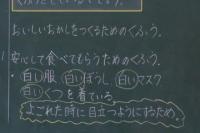 おいしいおかしをつくるためのくふう。
安心して食べてもらうためのくふう。
・白い服 白いぼうし 白いマスク
白いくつを着ている。
よごれた時に目立つようにするため。